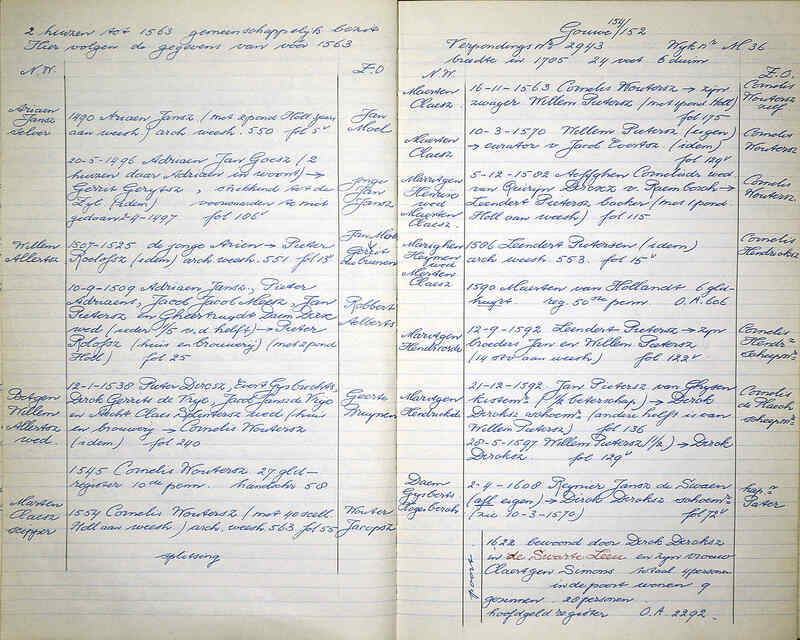 2 huizen tot 1563 gemeenschappelijk bezit
Hier volgen de gegevens van vóór 1563
N.W.
Z.O
Ariaen
Jansz
1490 Ariaen Jansz (met 2 pond Holl
aan weesh) arch weesh. 550 fol 5v
Jan
Moel
20-5-1496 Adriaen Jan Goesz (2
huizen daar Adriaen in woont) →
Gerrit Gerytsz, strekkend tot de
Zyl (idem) voorwaarden te met
2-4-1497 fol 106v
Jonge
Jan
Jansz
Willem
Allertsz
1507-1525 de jonge Arien → Pieter
Roelofsz (idem) arch weesh. 551 fol 18v
Gerrit
10-9-1509 Adriaen Jansz, Pieter
Adriaens, Jacob Jacob Meesz, Jan
Pietersz en Gheertruydt Daem Dirck
wed (ieder 1/5 v.d. helft) → Pieter
Rolofsz (huis en brouwerij) (met 2 pond
Holl) fol 25
Robbert
Aelberts
Willem
Allertsz
wed.
12-1-1538 Pieter Dircsz, Evert Gysbrechts,
Dirck Gerrits de Vrye, Jacob Jansz de Vrye
en Aecht Claes wed (huis
en brouwerij → Cornelis Woutersz
(idem) fol 240
Geertt
1545 Cornelis Woutersz 27 gld-
register 10de penn. 58
Marten
Claesz
1554 Cornelis Woutersz (met 40 scell.
Holl aan weesh) arch. weesh 563 fol 55
Wouter
Jacopsz
splitsing
Gouwe 154/152
Verpondings No 2943 Wyk Nr M 36
breedte in 1705 24 voet 6 duim
N.W.
Z.O.
Maerten
Claesz
16-11-1563 Cornelis Woutersz → zyn
zwager Willem Pietersz (met 1 pond Holl)
fol 175
Cornelis
Woutersz
zelf
Maerten
Claesz
10-3-1570 Willem Pietersz (eigen)
→ curator v Jacob Evertsz (idem)
fol 129v
Cornelis
Woutersz
Marritgen
wed
Maerten
Claesz.
5-12-1582 Aeffghen Cornelisdr wed
van Quiryn Dircsz v. Raemboch →
Leendert Pietersz backer (met 1 pond
Holl aan weesh) fol 115
Cornelis
Woutersz
Marighen
Heymen
wed
Maerten
Claesz
1586 Leendert Pietersen (idem)
arch weesh 553. fol 15v
Cornelis
Hendricksz
1590 Maerten van Hollandt 6 gld-
huyrt reg. 50ste penn. O.A. 606
Marritgen
Hendricxdr
12-9-1592 Leendert Pietersz → zyn
broeders Jan en Willem Pietersz
(14 stv aan weesh) fol 122v
Cornelis
Hendr.sz
scheepmr
Marritgen
Hendricksdr
21-12-1592 Jan Pietersz van Ghysen
kistemr (1/2 beterschap) → Dirck
Dircksz schoemr (andere helft is van
Willem Pietersz) fol 136
28-5-1597 Willem Pietersz (1/2) → Dirck
Dircksz. fol 129v
Cornelis
scheepmr
Daem
Gysberts
2-4-1608 Reynier Jansz de Swaen
(afl eigen) → Dirck Dircksz schoemr
(zie 10-3-1570) fol 72v
Pater
poort
1622 bewoond door Dirck Dircksz
in de Swarte Leeu en zyn vrouw
Claertgen Simons totaal 4 personen
in de poort wonen 9
gezinnen 28 personen
hoofdgeld register O.A. 2292.